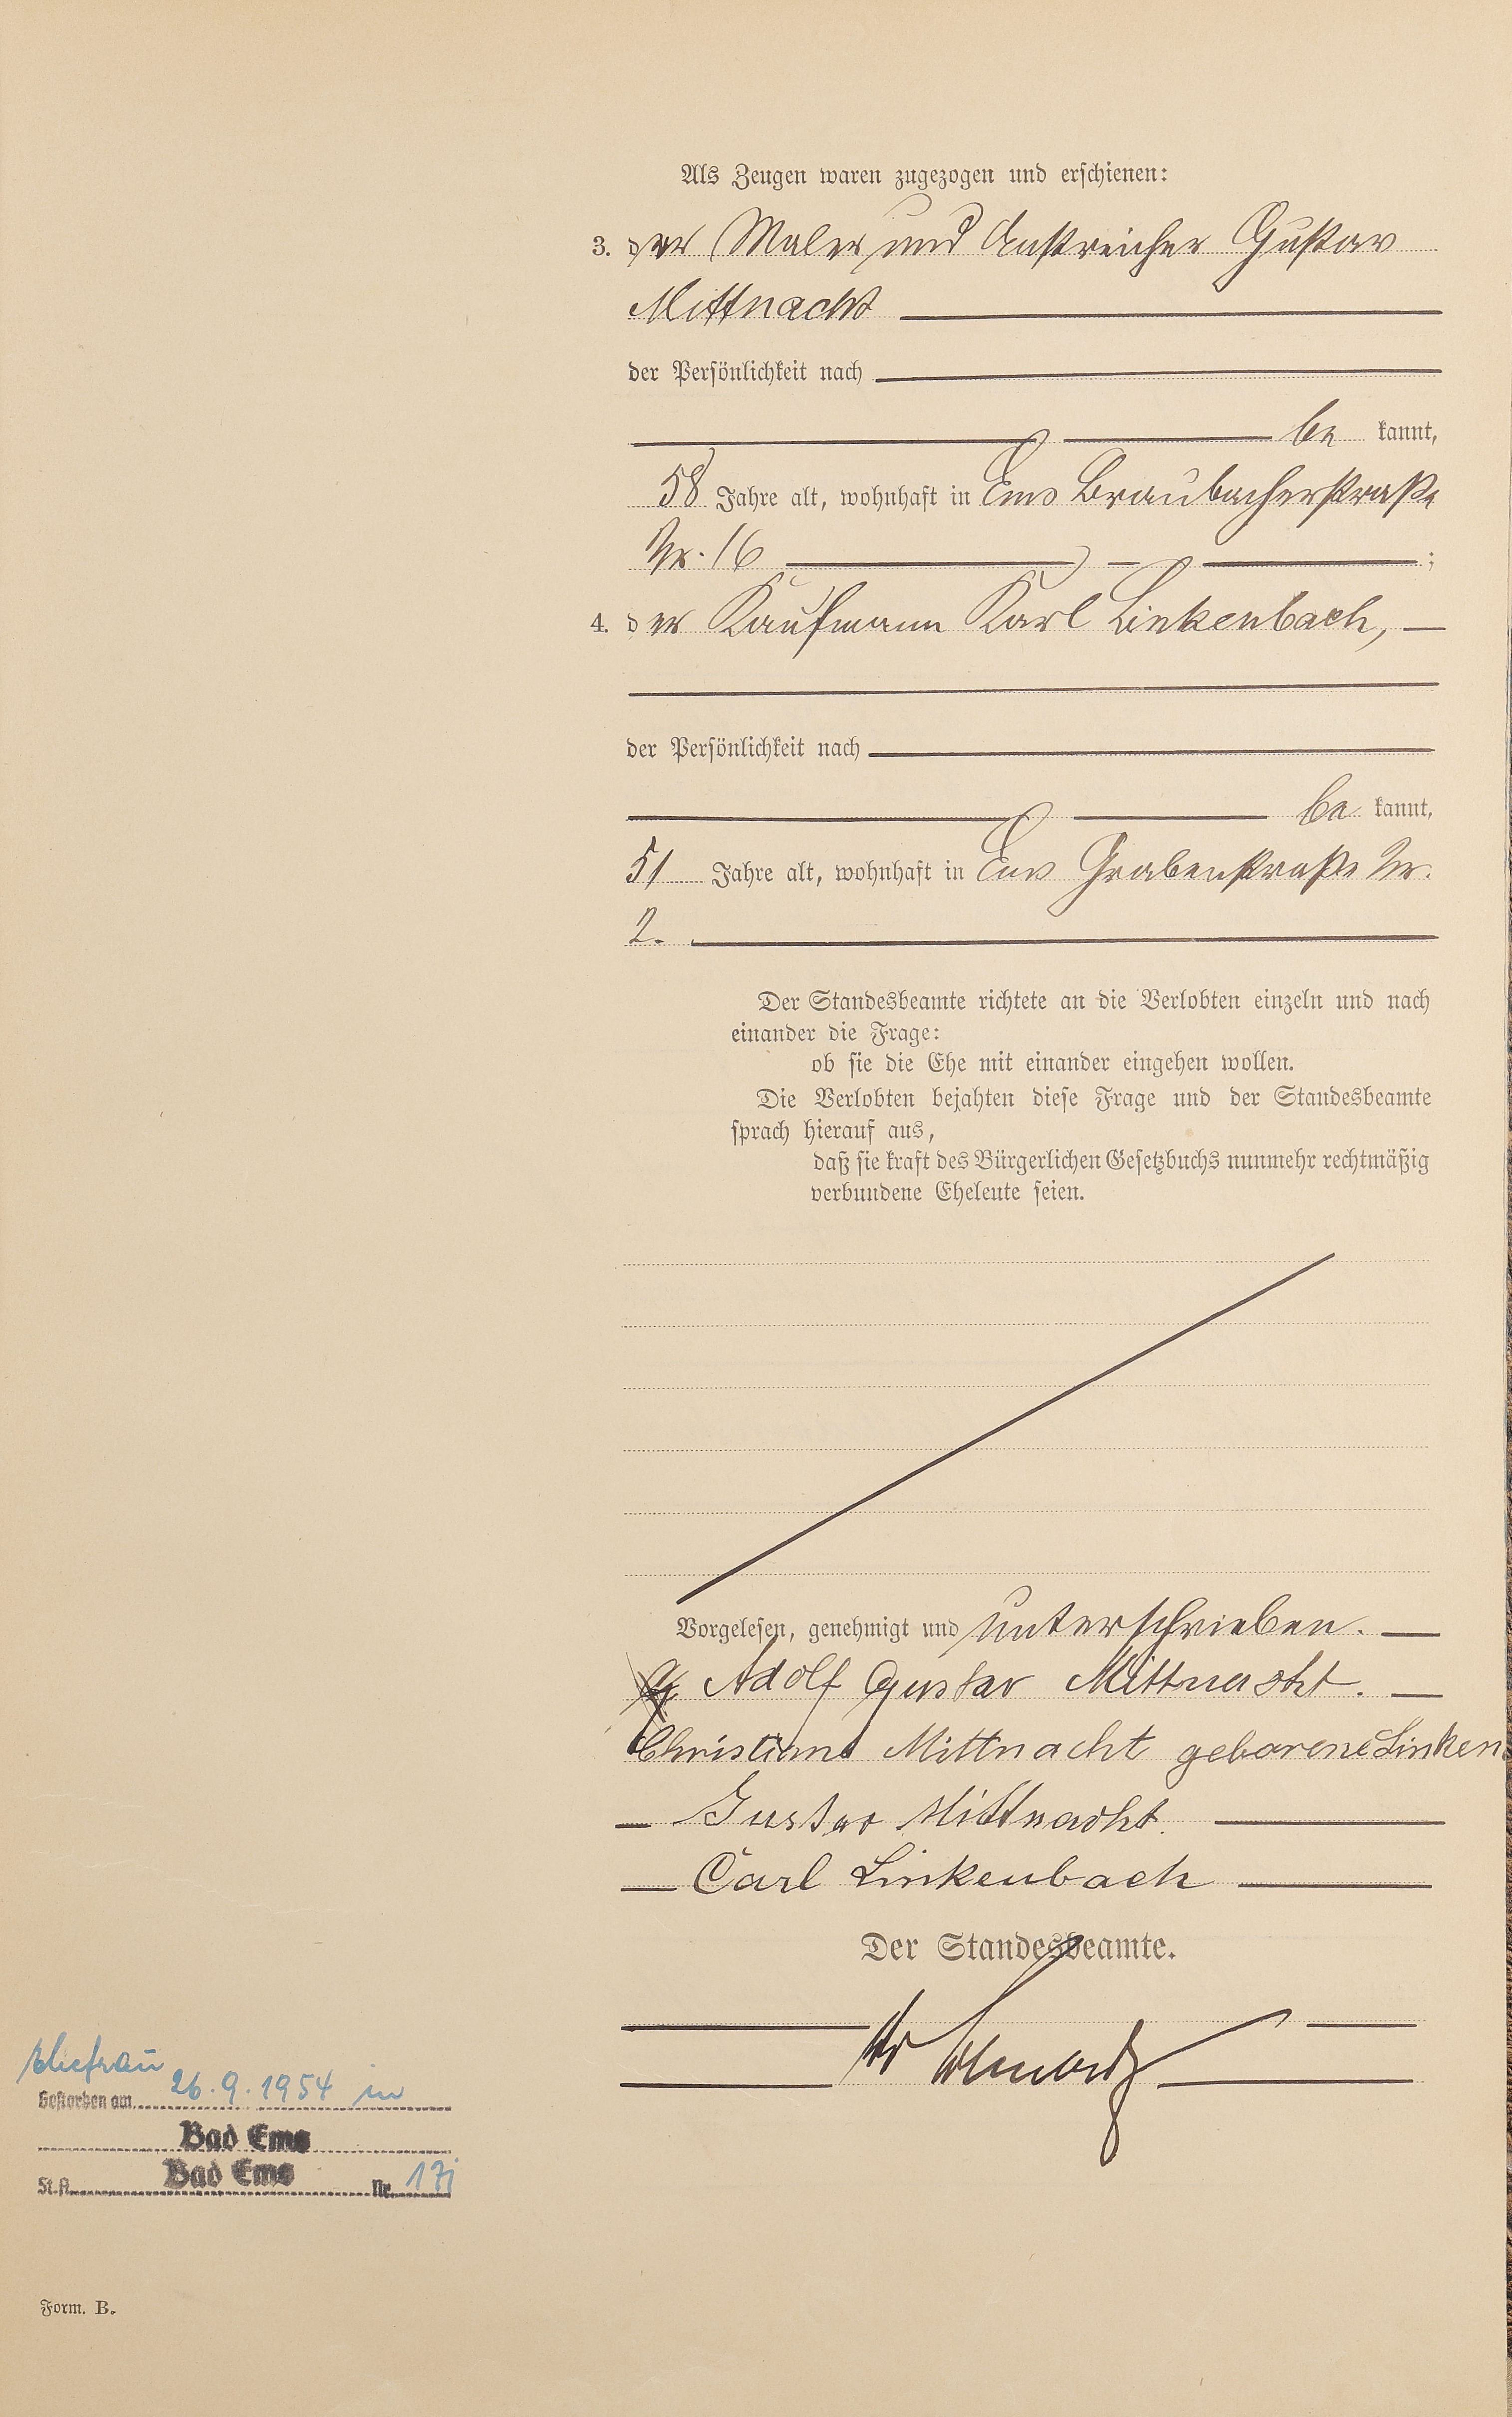 Als Zeugen waren zugezogen und erschienen:
3. der Maler und Anstreicher Gustav
Mittnacht
der Persönlichkeit nach
be kannt,
58 Jahre alt, wohnhaft in Ems Braubacherstraße
Nr. 16 ;
4. der Kaufmann Karl Linkenbach,
der Persönlichkeit nach
be kannt,
51 Jahre alt, wohnhaft in Ems Grabenstraße Nr.
2.
Der Standesbeamte richtete an die Verlobten einzeln und nach
einander die Frage:
ob sie die Ehe mit einander eingehen wollen.
Die Verlobten bejahten diese Frage und der Standesbeamte
sprach hierauf aus,
daß sie kraft des Bürgerlichen Gesetzbuchs nunmehr rechtmäßig
verbundene Eheleute seien.
Vorgelesen, genehmigt und unterschrieben.
Adolf Gustav Mittnacht.
Christiane Mittnacht geborene Linken
Gustav Mittnacht.
Carl Linkenbach
Der Standesbeamte.
Ehefrau
Gestorben am 26.9.1954 in
Bad Ems
St.A. Bad Ems Nr.
Form. B.